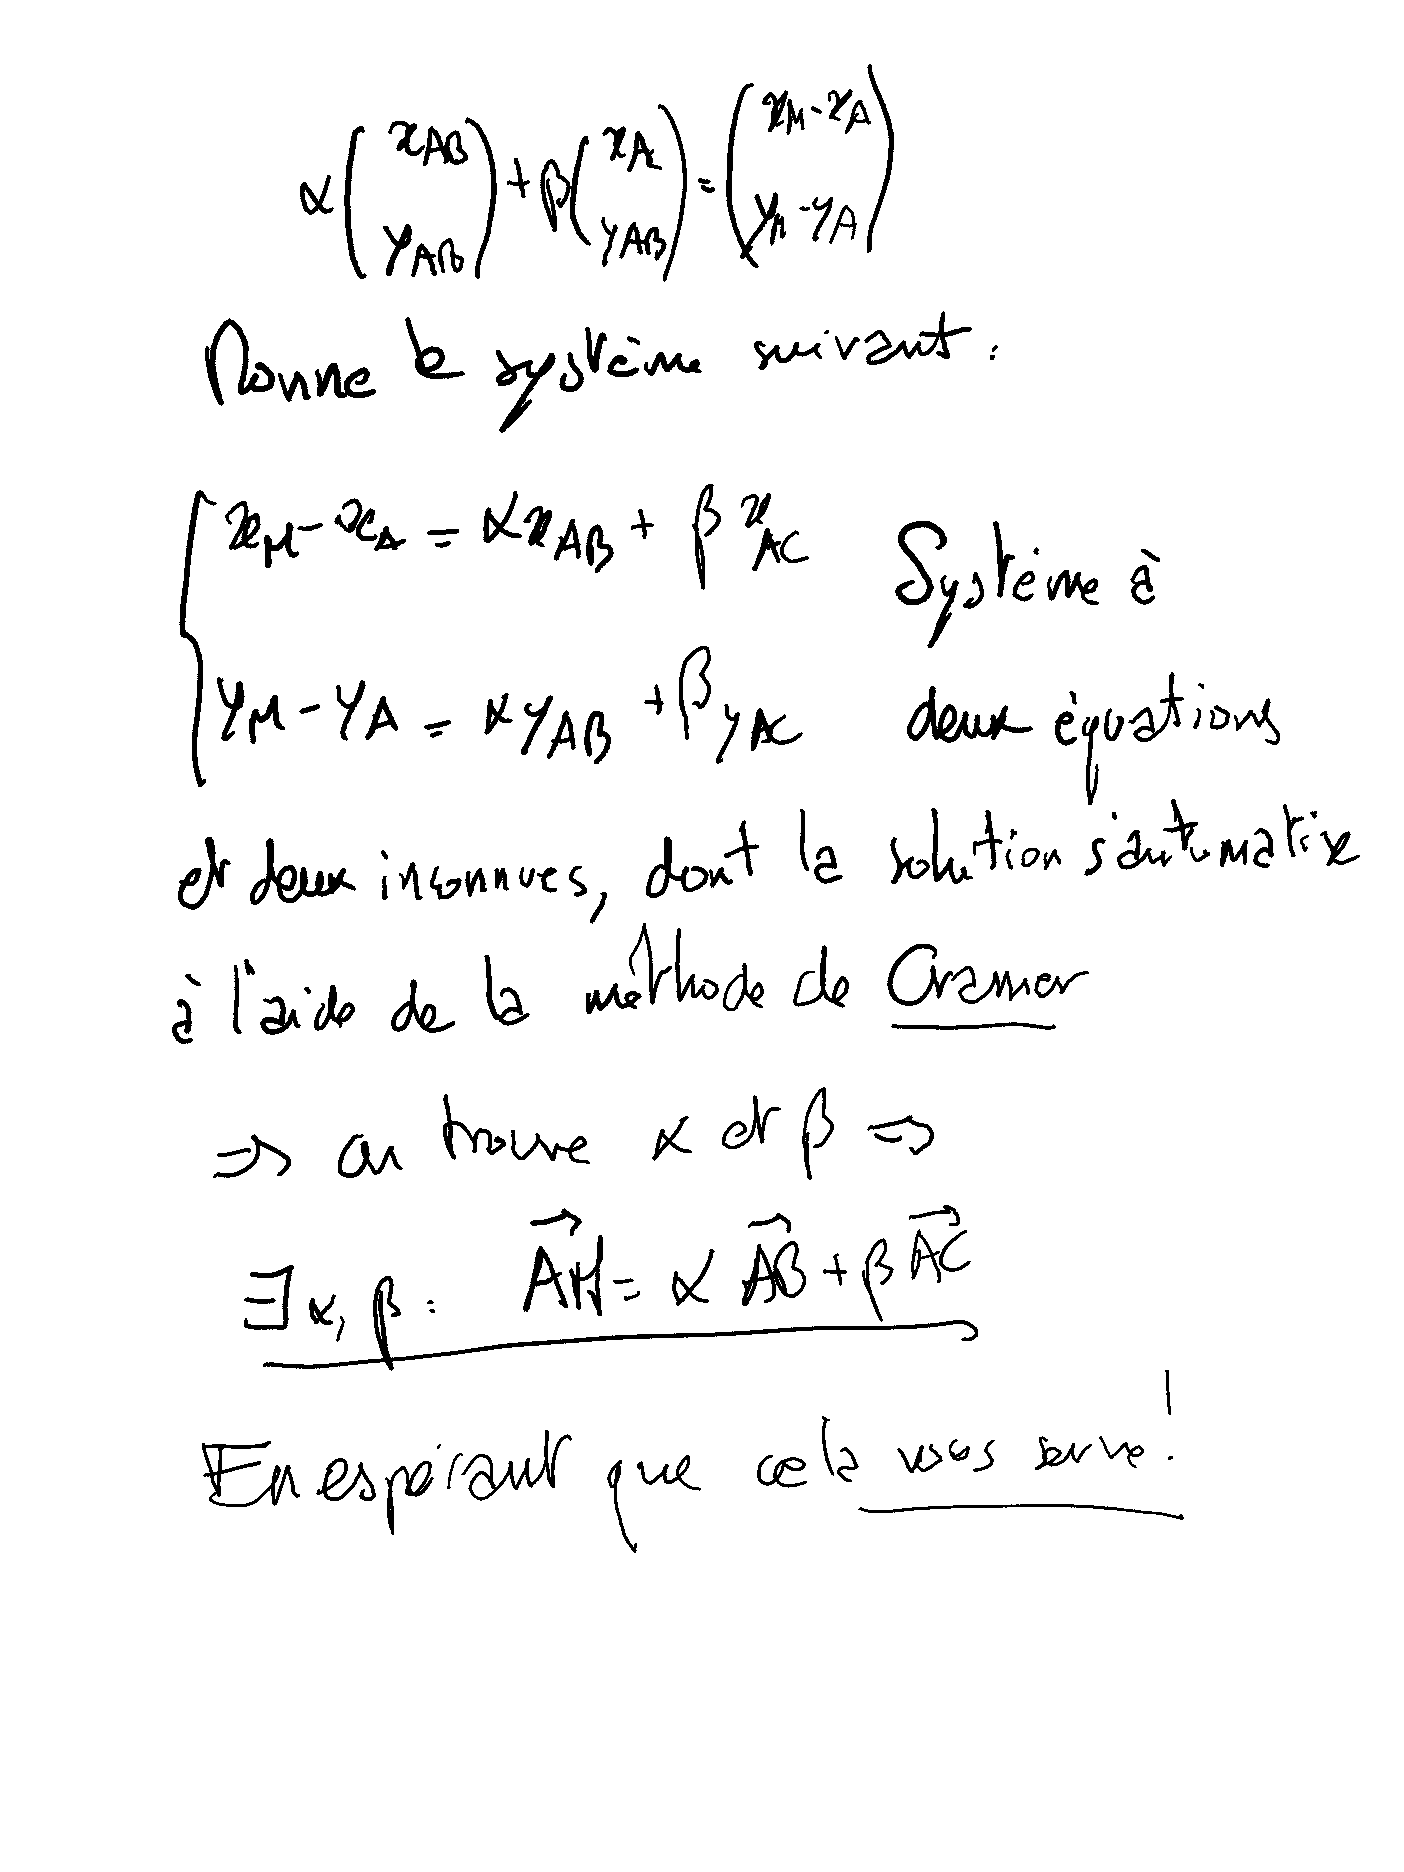 α(x_AB y_AB) + β(x_AC y_AB) = (x_M - x_A y_M - y_A)
Donne le système suivant :
{ x_M - x_A = α x_AB + β x_AC Système à
y_M - y_A = α y_AB + β y_AC deux équations
et deux inconnues, dont la solution s'automatise
à l'aide de la méthode de Cramer
⇒ on trouve α et β ⇒
∃ α, β : \overrightarrow{AM} = α \overrightarrow{AB} + β \overrightarrow{AC}
En espérant que cela vous serve !